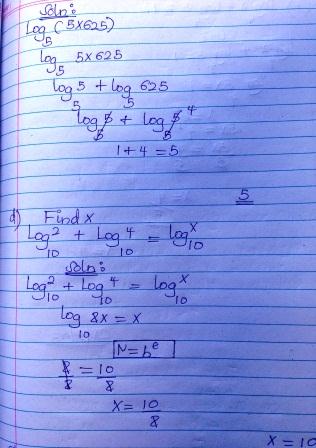 Soln:
log₅(5x625)
log₅ 5x625
log₅5 + log₅ 625
log₅5 + log₅5⁴
1+4 = 5
5
d) Find x
Log₁₀2 + Log₁₀4 = log₁₀x
Soln:
Log₁₀2 + Log₁₀4 = log₁₀x
log₁₀ 8x = x
N=bᵉ
8/8 = 10/8
x = 10/8
x = 10